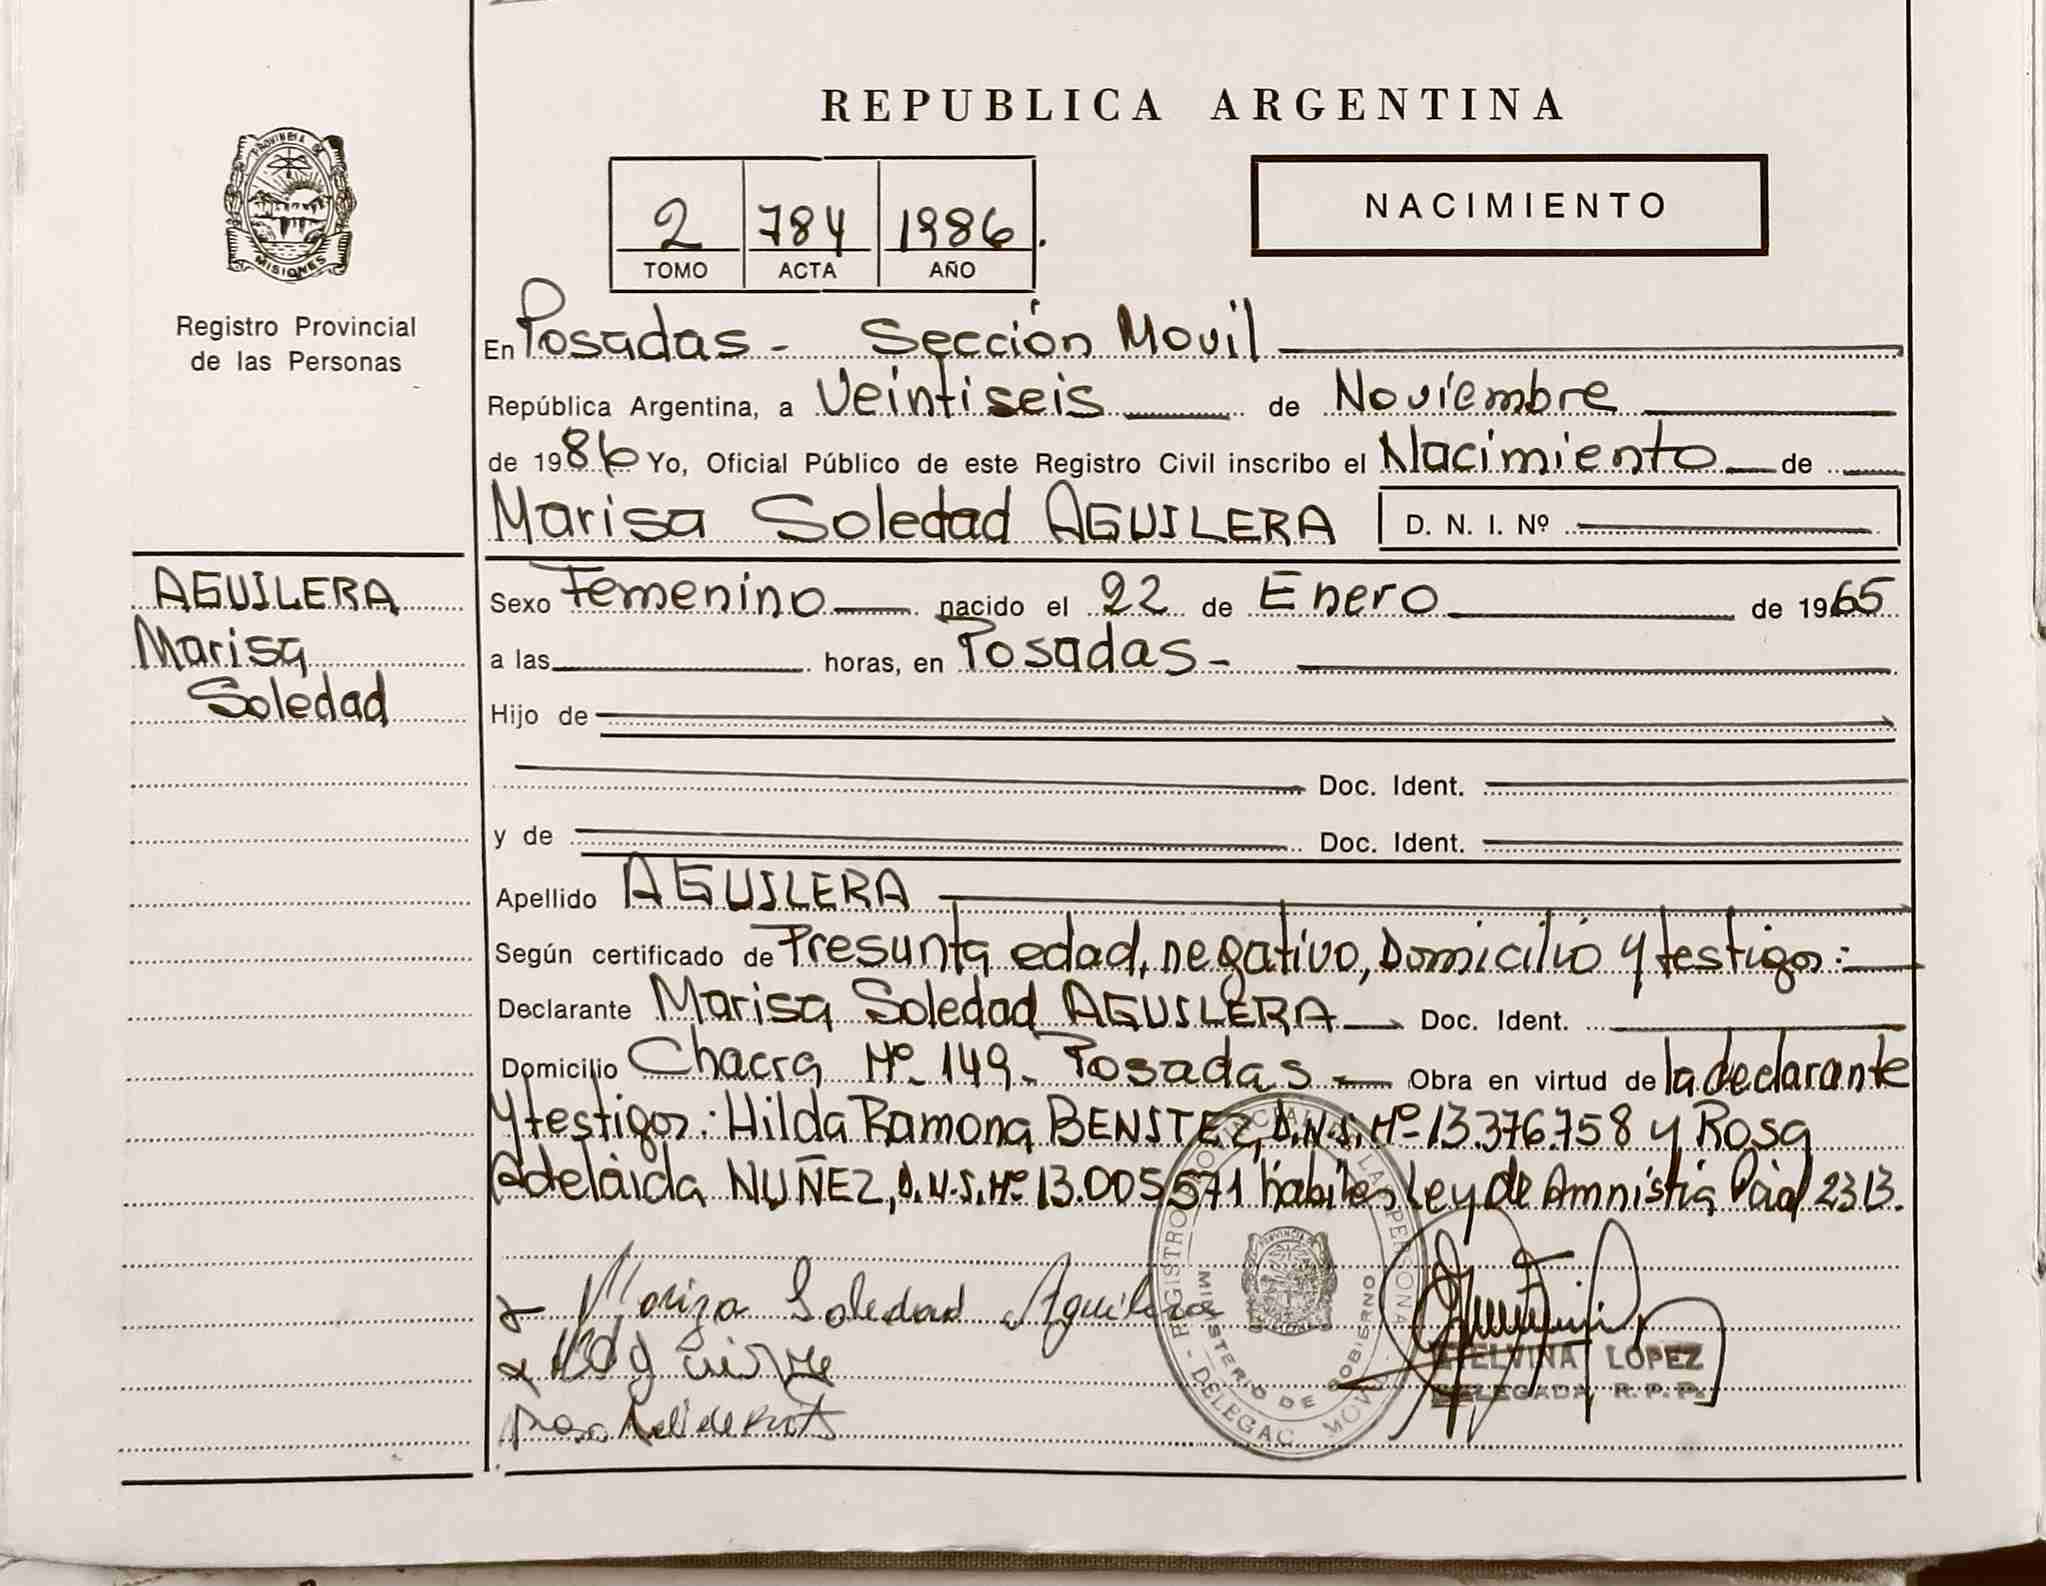 REPUBLICA ARGENTINA
PROVINCIA DE
MISIONES
Registro Provincial
de las Personas
2 784 1986.
TOMO ACTA AÑO
NACIMIENTO
En Posadas - Sección Movil
República Argentina, a Veintiseis de Noviembre
de 1986 Yo, Oficial Público de este Registro Civil inscribo el Nacimiento de
Marisa Soledad AGUILERA D. N. I. Nº
AGUILERA
Marisa
Soledad
Sexo Femenino nacido el 22 de Enero de 1965
a las horas, en Posadas -
Hijo de
Doc. Ident.
y de Doc. Ident.
Apellido AGUILERA
Según certificado de Presunta edad, negativo, Domicilio y testigos:
Declarante Marisa Soledad AGUILERA Doc. Ident.
Domicilio Chacra Nº 149 - Posadas - Obra en virtud de la declarante
y testigos: Hilda Ramona BENITEZ, D.N.I. Nº 13.376.758 y Rosa
Adelaida NUÑEZ, D.N.I. Nº 13.005.571 hábiles Ley de Amnistía 2313.
Mariza Soledad Aguilera
Rosa
REGISTRO PROVINCIAL DE LAS PERSONAS
MINISTERIO DE GOBIERNO
- DELEGAC. MOVIL
ETELVINA LOPEZ
DELEGADA R. P. P.